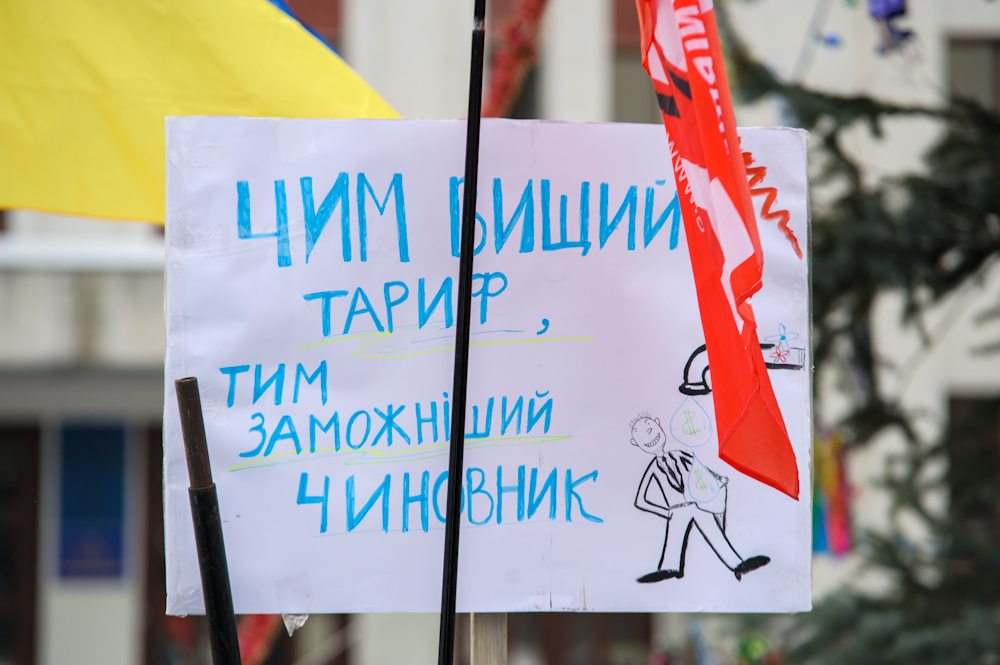 ЧИМ ВИЩИЙ
ТАРИФ,
ТИМ
ЗАМОЖНІШИЙ
ЧИНОВНИК
$
$